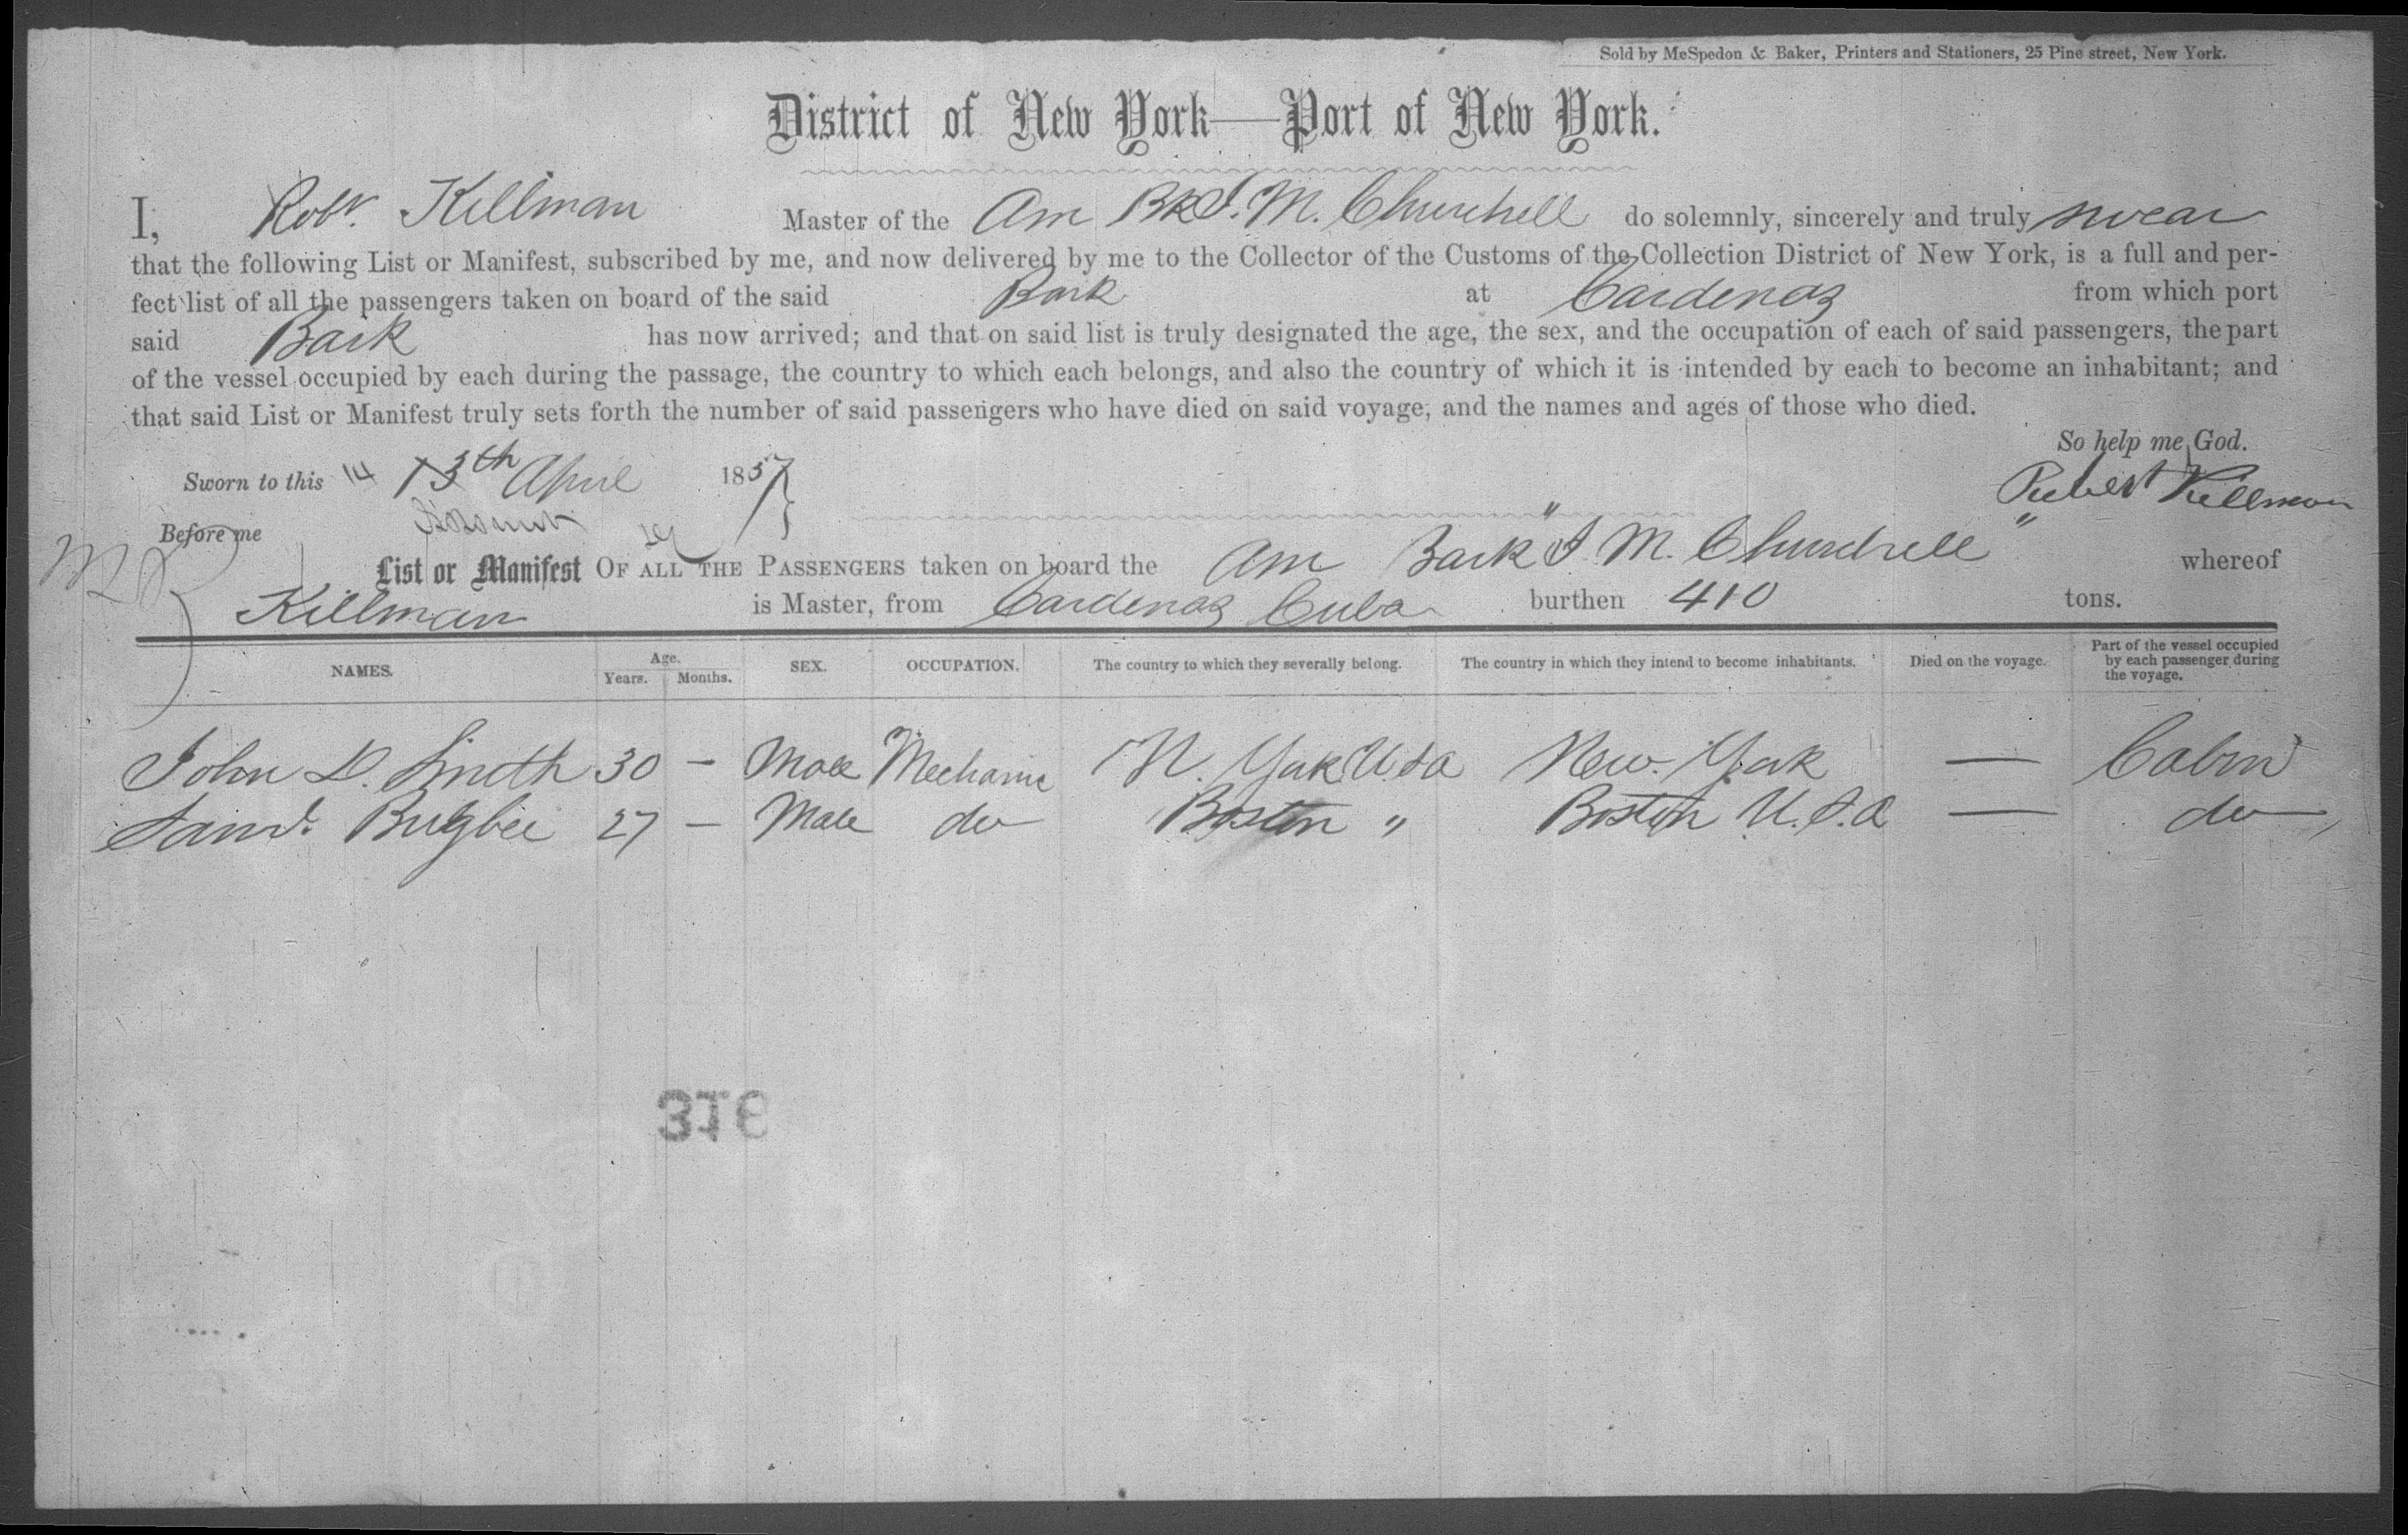 Sold by McSpedon & Baker, Printers and Stationers, 25 Pine street, New York.
District of New York—Port of New York.
I, Robt. Killman Master of the Am Bk J. M. Churchill do solemnly, sincerely and truly swear
that the following List or Manifest, subscribed by me, and now delivered by me to the Collector of the Customs of the Collection District of New York, is a full and per-
fect list of all the passengers taken on board of the said Bark at Cardenas from which port
said Bark has now arrived; and that on said list is truly designated the age, the sex, and the occupation of each of said passengers, the part
of the vessel occupied by each during the passage, the country to which each belongs, and also the country of which it is intended by each to become an inhabitant; and
that said List or Manifest truly sets forth the number of said passengers who have died on said voyage, and the names and ages of those who died.
So help me God.
Sworn to this 14 13th April 1857 Robert Killman
Before me
List or Manifest OF ALL THE PASSENGERS taken on board the Am Bark "J. M. Churchill" whereof
Killman is Master, from Cardenas Cuba burthen 410 tons.
NAMES. Age. Years. Months. SEX. OCCUPATION. The country to which they severally belong. The country in which they intend to become inhabitants. Died on the voyage. Part of the vessel occupied by each passenger during the voyage.
John D. Smith 30 — Male Mechanic N. York U.S.A New York — Cabin
Saml. Bugbee 27 — Male do Boston " Boston U.S.A — do